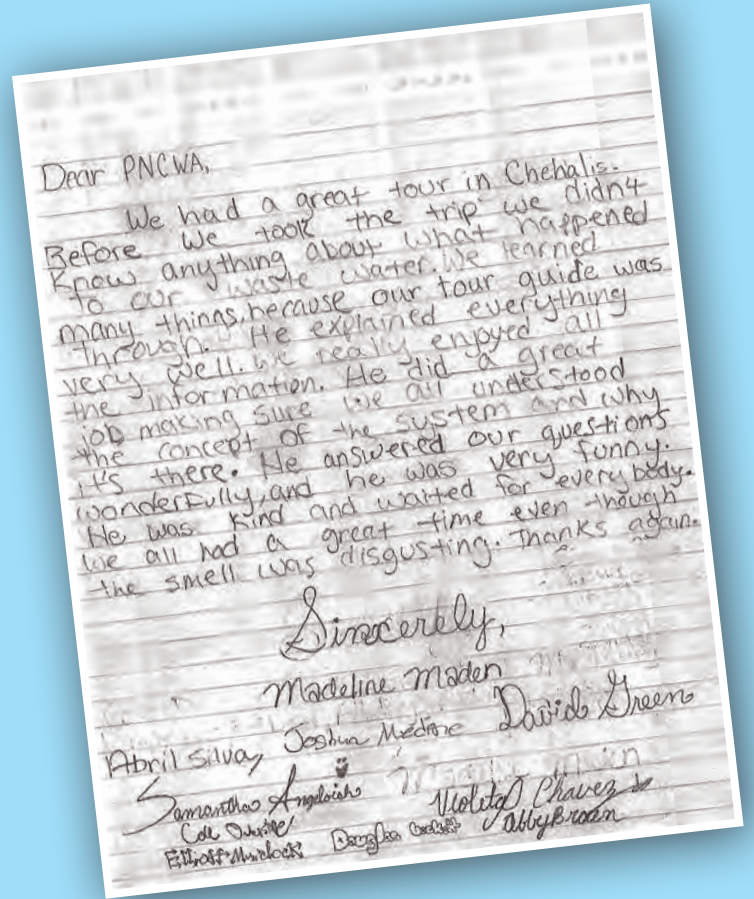 Dear PNCWA,
We had a great tour in Chehalis.
Before we took the trip we didn4
Know anything about what happened
to our waste water. We learned
many things, because our tour guide was
through. He explained everything
very well. We really enjoyed all
the information. He did a great
job making sure we all understood
the concept of the system and why
it's there. He answered our questions
wonderfully, and he was very funny.
He was kind and waited for everybody.
We all had a great time even though
the smell was disgusting. Thanks again.
Sincerely,
Madeline Maden
Abril Silva, Joshua David Green
Samantha Violeta Chavez
Abby